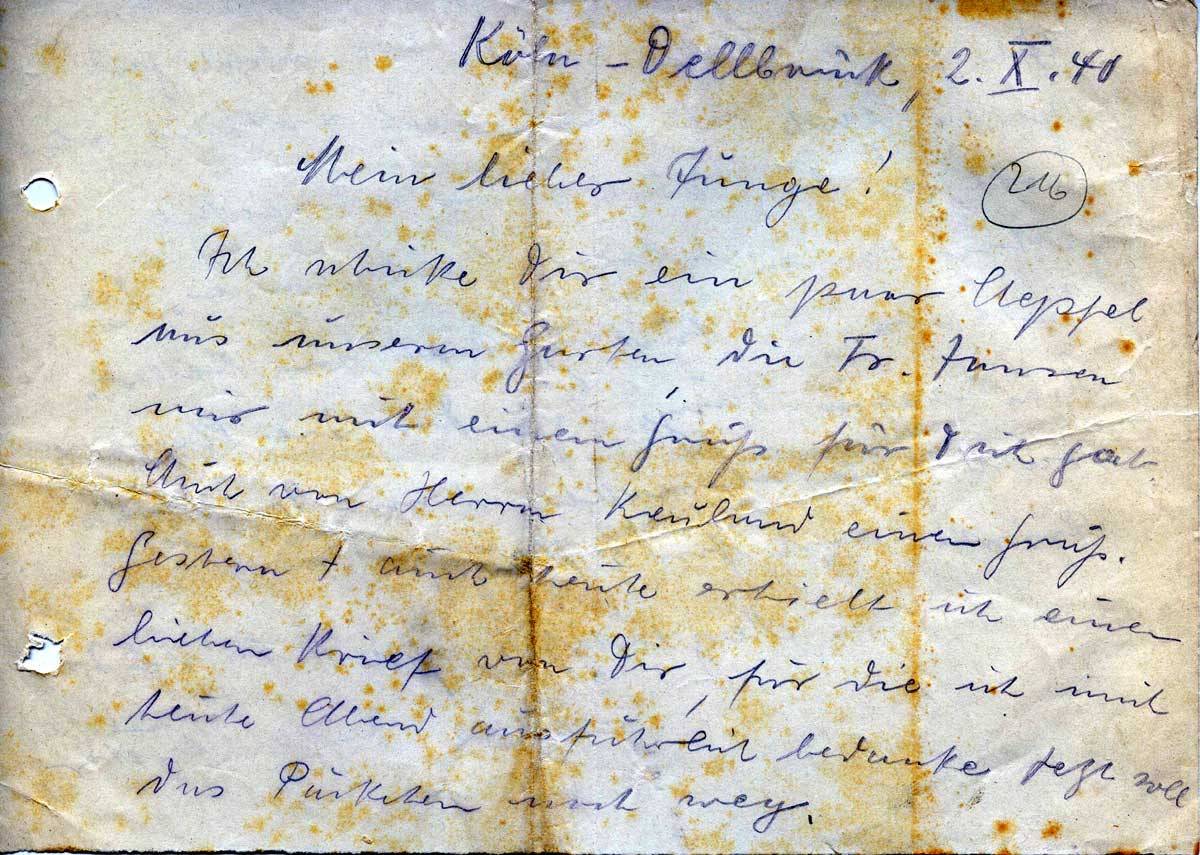 Köln-Dellbrück, 2. X. 40
Mein lieber Junge!
216
Ich schicke Dir ein paar Aepfel
aus unserem Garten, die Fr. Jansen
mir mit einem Gruß für Dich gab
Auch von Herrn Keuland einen Gruß.
Gestern + auch heute erhielt ich einen
lieben Brief von Dir, für die ich mich
heute Abend ausführlich bedanke. Jezt soll
das Päckchen noch weg.